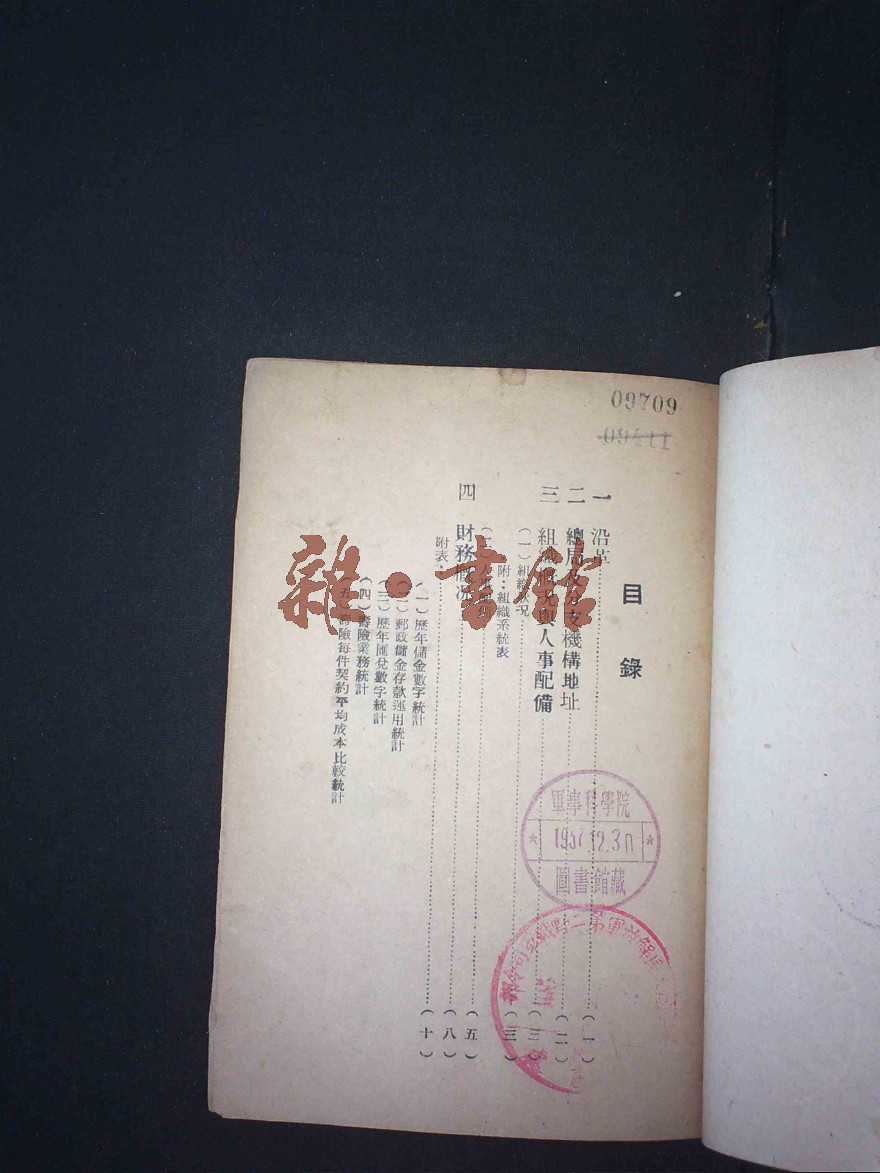 09709
目錄
一 沿革 (一)
二 總局及分支機構地址 (二)
三 組織概況與人事配備 (三)
(一)組織狀況 (三)
附：組織系統表 (五)
(二)人事 (八)
四 財務情況 (十)
附表：
(一)歷年儲金數字統計
(二)郵政儲金存款運用統計
(三)歷年匯兌數字統計
(四)壽險業務統計
(五)壽險每件契約平均成本比較統計
軍事科學院
195712.30
圖書館藏
解放軍第二野戰軍司令部
雜·書館